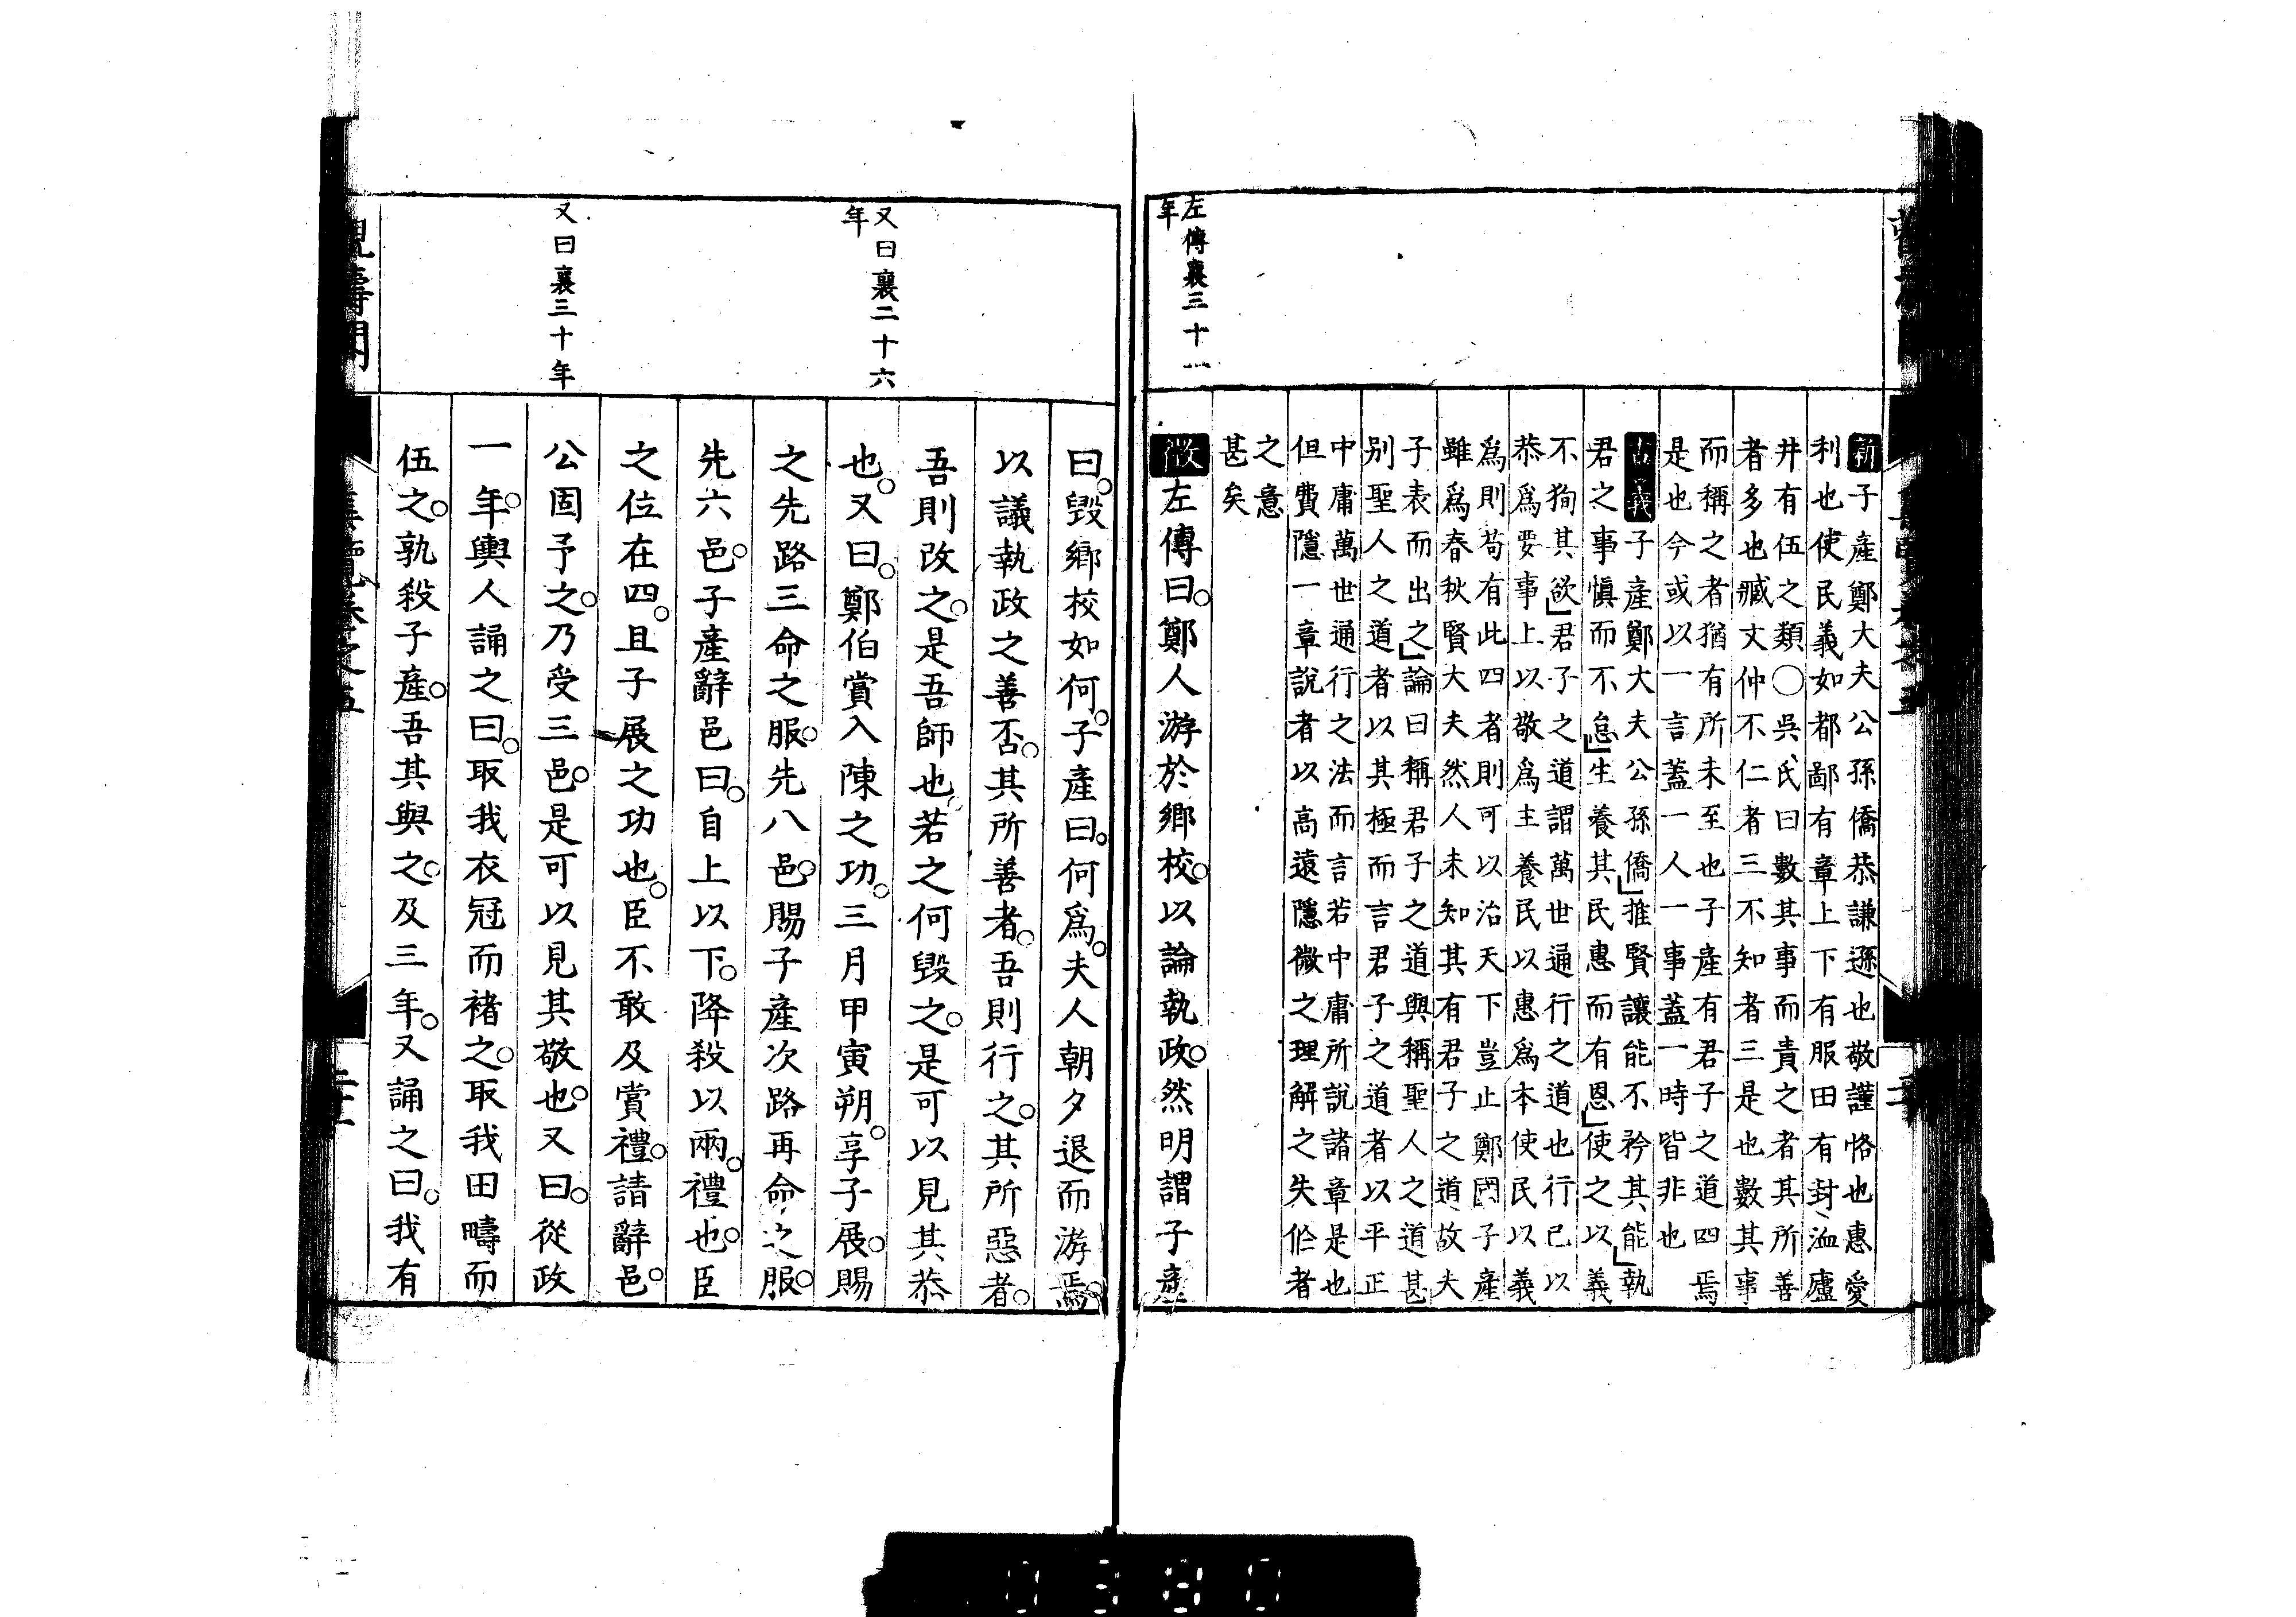 左傳襄三十一
年
新子產鄭大夫公孫僑恭謙遜也敬謹恪也惠愛
利也使民義如都鄙有章上下有服田有封洫廬
井有伍之類〇吳氏曰數其事而責之者其所善
者多也臧文仲不仁者三不知者三是也數其事
而稱之者猶有所未至也子產有君子之道四焉
是也今或以一言蓋一人一事蓋一時皆非也
古義子產鄭大夫公孫僑推賢讓能不矜其能執
君之事愼而不怠生養其民惠而有恩使之以義
不狥其欲君子之道謂萬世通行之道也行己以
恭爲要事上以敬爲主養民以惠爲本使民以義
爲則苟有此四者則可以治天下豈止鄭國子產
雖爲春秋賢大夫然人未知其有君子之道故夫
子表而出之論曰稱君子之道與稱聖人之道甚
別聖人之道者以其極而言君子之道者以平正
中庸萬世通行之法而言若中庸所說諸章是也
但費隱一章說者以高遠隱微之理解之失作者
之意
甚矣
徵左傳曰鄭人游於鄉校以論執政然明謂子產
又曰襄二十六
年
又曰襄三十年
曰毀鄉校如何子產曰何爲夫人朝夕退而游焉
以議執政之善否其所善者吾則行之其所惡者
吾則改之是吾師也若之何毀之是可以見其恭
也又曰鄭伯賞入陳之功三月甲寅朔享子展賜
之先路三命之服先八邑賜子產次路再命之服
先六邑子產辭邑曰自上以下降殺以兩禮也臣
之位在四且子展之功也臣不敢及賞禮請辭邑
公固予之乃受三邑是可以見其敬也又曰從政
一年輿人誦之曰取我衣冠而褚之取我田疇而
伍之孰殺子產吾其與之及三年又誦之曰我有
0380